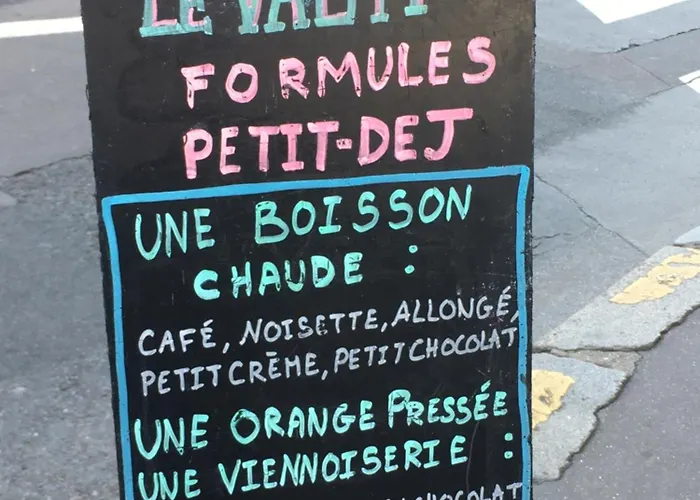 LE
FORMULES
PETIT-DEJ
UNE BOISSON
CHAUDE :
CAFÉ, NOISETTE, ALLONGÉ,
PETIT CRÈME, PETIT CHOCOLAT
UNE ORANGE PRESSÉE
UNE VIENNOISERIE :
CHOCOLAT